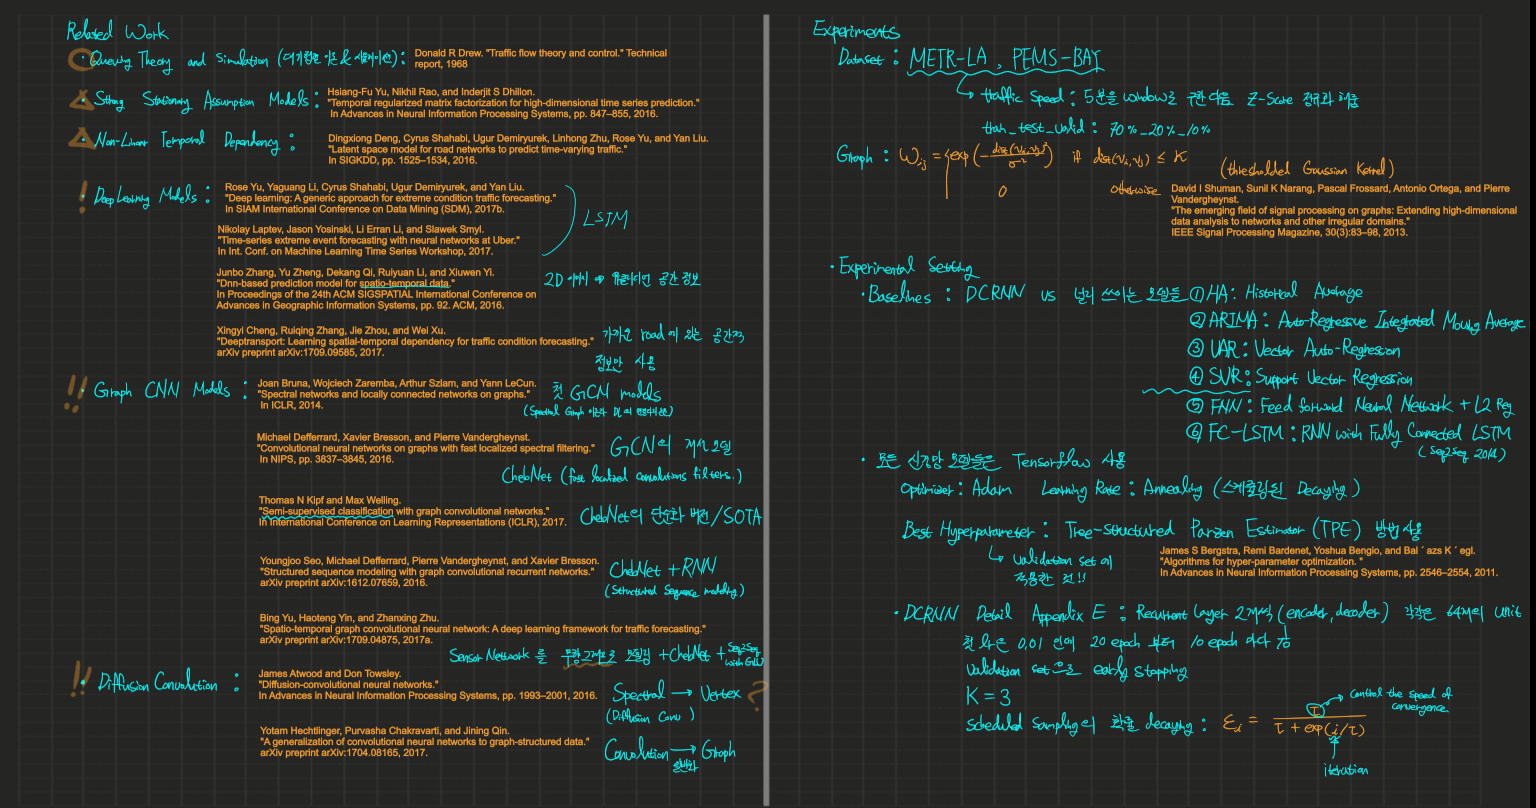 Related Work
· Queuing Theory and Simulation (대기행렬 이론 & 시뮬레이션) :
Donald R Drew. "Traffic flow theory and control." Technical
report, 1968
· Strong Stationary Assumption Models :
Hsiang-Fu Yu, Nikhil Rao, and Inderjit S Dhillon.
"Temporal regularized matrix factorization for high-dimensional time series prediction."
In Advances in Neural Information Processing Systems, pp. 847–855, 2016.
· Non-Linear Temporal Dependency :
Dingxiong Deng, Cyrus Shahabi, Ugur Demiryurek, Linhong Zhu, Rose Yu, and Yan Liu.
"Latent space model for road networks to predict time-varying traffic."
In SIGKDD, pp. 1525–1534, 2016.
! Deep Learning Models :
Rose Yu, Yaguang Li, Cyrus Shahabi, Ugur Demiryurek, and Yan Liu.
"Deep learning: A generic approach for extreme condition traffic forecasting."
In SIAM International Conference on Data Mining (SDM), 2017b.
LSTM
Nikolay Laptev, Jason Yosinski, Li Erran Li, and Slawek Smyl.
"Time-series extreme event forecasting with neural networks at Uber."
In Int. Conf. on Machine Learning Time Series Workshop, 2017.
Junbo Zhang, Yu Zheng, Dekang Qi, Ruiyuan Li, and Xiuwen Yi.
"Dnn-based prediction model for spatio-temporal data."
In Proceedings of the 24th ACM SIGSPATIAL International Conference on
Advances in Geographic Information Systems, pp. 92. ACM, 2016.
2D 이미지 ⇒ 유클리디언 공간 정보
Xingyi Cheng, Ruiqing Zhang, Jie Zhou, and Wei Xu.
"Deeptransport: Learning spatial-temporal dependency for traffic condition forecasting."
arXiv preprint arXiv:1709.09585, 2017.
가까운 road에 있는 공간적
정보만 사용
!! · Graph CNN Models :
Joan Bruna, Wojciech Zaremba, Arthur Szlam, and Yann LeCun.
"Spectral networks and locally connected networks on graphs."
In ICLR, 2014.
첫 GCN models
(Spectral Graph 이론과 DL의
Michael Defferrard, Xavier Bresson, and Pierre Vandergheynst.
"Convolutional neural networks on graphs with fast localized spectral filtering."
In NIPS, pp. 3837–3845, 2016.
GCN의 개선 모델
ChebNet (fast localized convolutions filters.)
Thomas N Kipf and Max Welling.
"Semi-supervised classification with graph convolutional networks."
In International Conference on Learning Representations (ICLR), 2017.
ChebNet의 단순화 버전/SOTA
Youngjoo Seo, Michael Defferrard, Pierre Vandergheynst, and Xavier Bresson.
"Structured sequence modeling with graph convolutional recurrent networks."
arXiv preprint arXiv:1612.07659, 2016.
ChebNet + RNN
(Structured Sequence modeling)
Bing Yu, Haoteng Yin, and Zhanxing Zhu.
"Spatio-temporal graph convolutional neural network: A deep learning framework for traffic forecasting."
arXiv preprint arXiv:1709.04875, 2017a.
Sensor Network 를 무향그래프로 모델링 + ChebNet + Seq2Seq
!! · Diffusion Convolution :
James Atwood and Don Towsley.
"Diffusion-convolutional neural networks."
In Advances in Neural Information Processing Systems, pp. 1993–2001, 2016.
Spectral → Vertex ?
(Diffusion Conv)
Yotam Hechtlinger, Purvasha Chakravarti, and Jining Qin.
"A generalization of convolutional neural networks to graph-structured data."
arXiv preprint arXiv:1704.08165, 2017.
Convolution → Graph
일반화
Experiments
Dataset : METR-LA, PEMS-BAY
→ traffic Speed : 5분을 window로 구한 다음 Z-Score 정규화 해줌
train_test_valid : 70%_20%_10%
Graph : Wij = { exp(-dist(vi,vj)²/σ²) if dist(vi,vj) ≤ K
0 otherwise
(thresholded Gaussian Kernel)
David I Shuman, Sunil K Narang, Pascal Frossard, Antonio Ortega, and Pierre
Vandergheynst.
"The emerging field of signal processing on graphs: Extending high-dimensional
data analysis to networks and other irregular domains."
IEEE Signal Processing Magazine, 30(3):83–98, 2013.
· Experimental Setting
· Baselines : DCRNN vs 널리 쓰이는 모델들 ① HA : Historical Average
② ARIMA : Auto-Regressive Integrated Moving Average
③ VAR : Vector Auto-Regression
④ SVR : Support Vector Regression
⑤ FNN : Feed forward Neural Network + L2 Reg
⑥ FC-LSTM : RNN with Fully Connected LSTM
(Seq2Seq 2014)
· 모든 신경망 모델들은 Tensorflow 사용
Optimizer : Adam Learning Rate : Annealing (스케줄링된 Decaying)
Best Hyperparameter : Tree-Structured Parzen Estimator (TPE) 방법 사용
→ validation set에
적용한 것!!
James S Bergstra, Remi Bardenet, Yoshua Bengio, and Bal ´ azs K ´ egl.
"Algorithms for hyper-parameter optimization. "
In Advances in Neural Information Processing Systems, pp. 2546–2554, 2011.
· DCRNN Detail Appendix E : Recurrent Layer 2개씩 (encoder, decoder) 각각은 64개의 unit
첫 lr은 0.01 인데 20 epoch 부터 10 epoch 마다 1/10
validation set으로 early stopping
K = 3
Scheduled Sampling의 확률 decaying : εi = τ / (τ + exp(i/τ))
→ Control the speed of
convergence
iteration